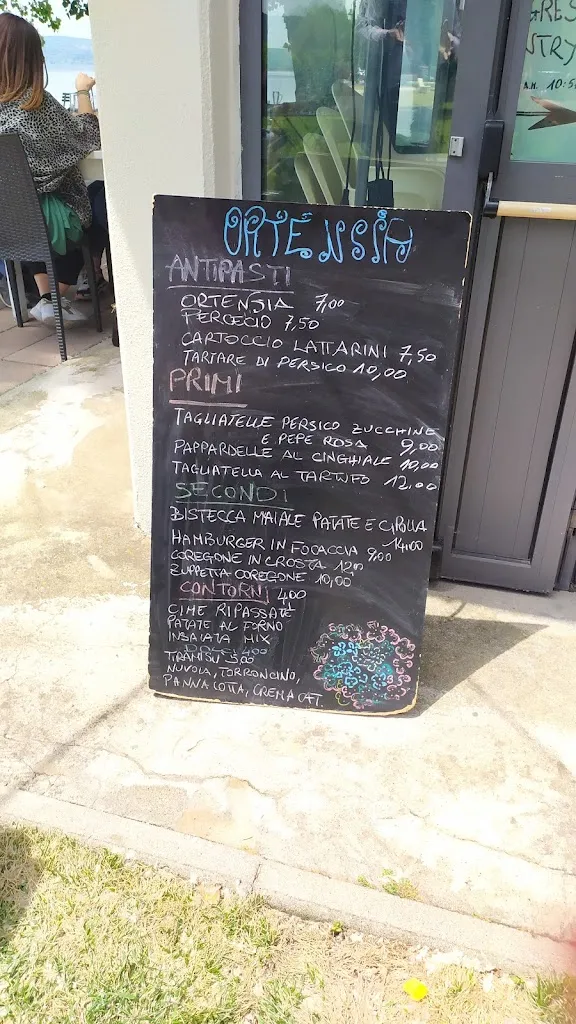 ORTENSIA
ANTIPASTI
ORTENSIA 7,00
PERCECIO 7,50
CARTOCCIO LATTARINI 7,50
TARTARE DI PERSICO 10,00
PRIMI
TAGLIATELLE PERSICO ZUCCHINE
E PEPE ROSA 9,00
PAPPARDELLE AL CINGHIALE 10,00
TAGLIATELLA AL TARTUFO 12,00
SECONDI
BISTECCA MAIALE PATATE E CIPOLLA
14,00
HAMBURGER IN FOCACCIA 9,00
COREGONE IN CROSTA 12,00
ZUPPETTA COREGONE 10,00
CONTORNI 4,00
CIME RIPASSATE
PATATE AL FORNO
INSALATA MIX
DOLCI 4,00
TIRAMISU 5,00
NUVOLA, TORRONCINO,
PANNA COTTA, CREMA CAT.